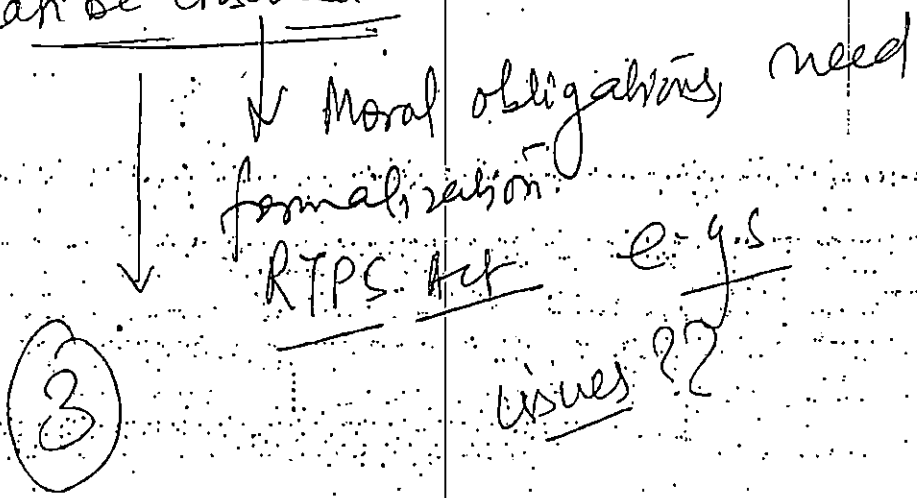 can be
Moral obligations, need
formalization
RTPS Act e.g.s
issues ??
3